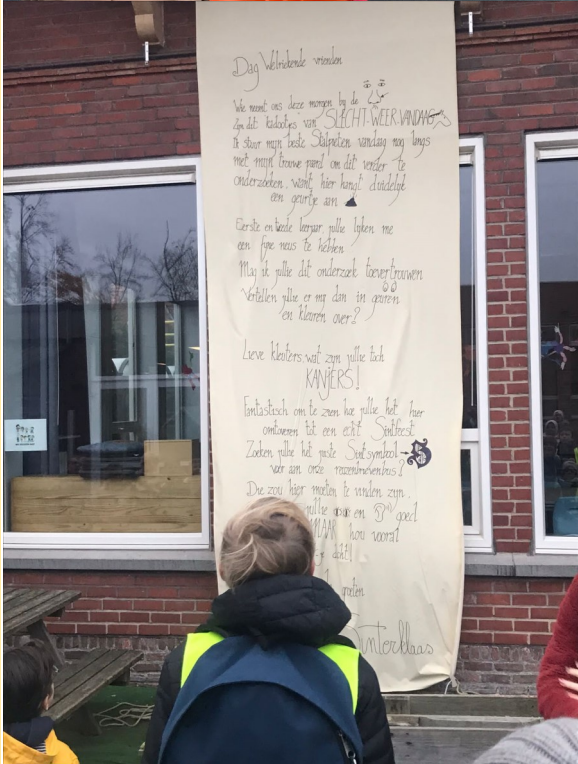 Dag Welriekende vrienden
Wie neemt ons deze morgen bij de
Zijn dit kadootjes van SLECHT-WEER-VANDAAG
Ik stuur mijn beste Stalpieten vandaag nog langs
met mijn trouwe paard om dit verder te
onderzoeken. Want, hier hangt duidelijk
een geurtje aan
Eerste en tweede leerjaar, jullie lijken me
een fijne neus te hebben
Mag ik jullie dit onderzoek toevertrouwen
Vertellen jullie er mij dan in geuren
en kleuren over?
Lieve kleuters, wat zijn jullie toch
KANJERS!
Fantastisch om te zien hoe jullie het hier
omtoveren tot een echt Sintfeest
Zoeken jullie het juiste Sintsymbool
voor aan onze reuzenbrievenbus?
Die zou hier moeten te vinden zijn.
jullie en goed
MAAR hou vooral
dicht!
groeten
Sinterklaas